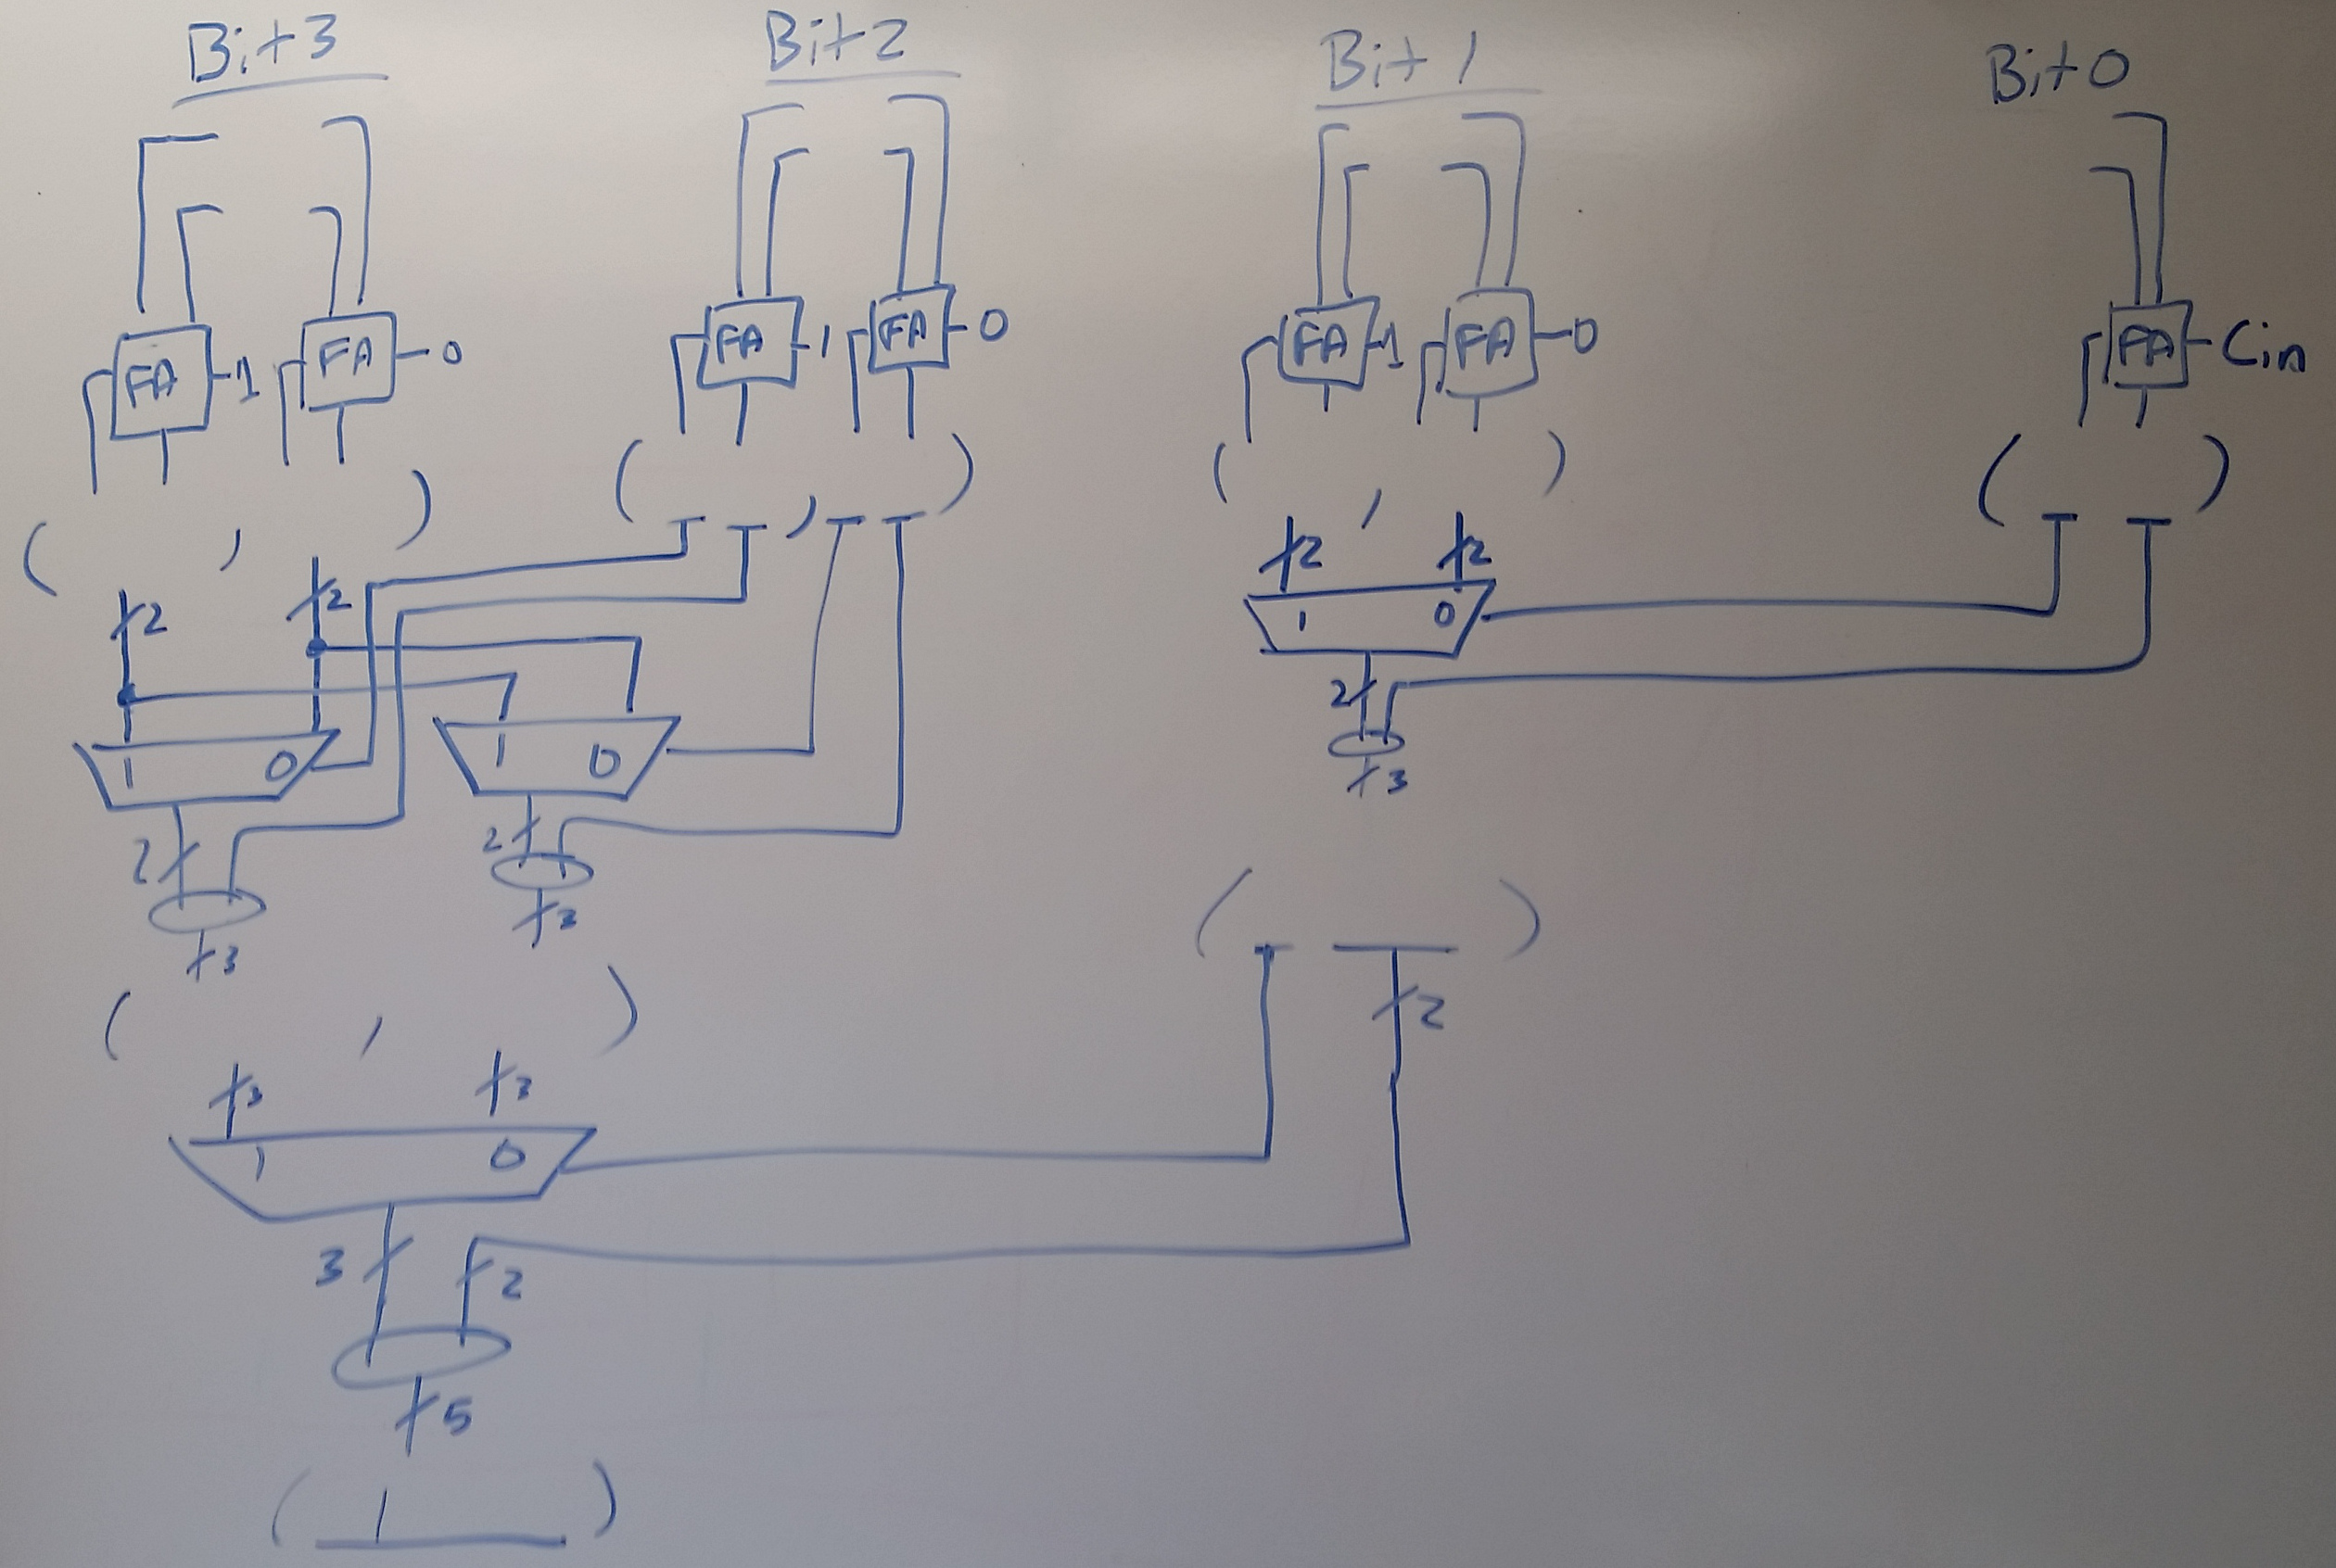 Bit 3 Bit 2 Bit 1 Bit 0
FA 1 FA 0 FA 1 FA 0 FA 1 FA 0 FA Cin
( , ) ( , ) ( , ) ( )
2 2 2 2
1 0 1 0 1 0
2 2 2
3 3 3
( , ) ( )
3 3 2
1 0
3 2
5
( )